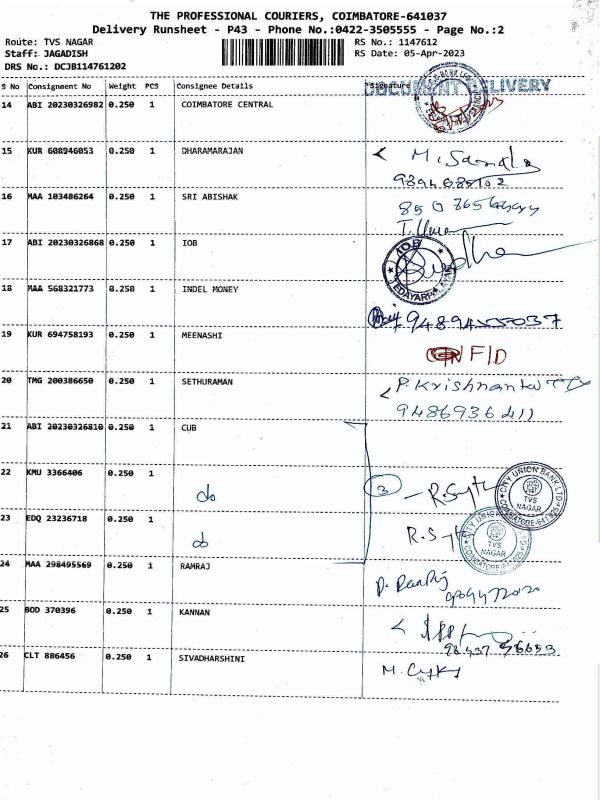 THE PROFESSIONAL COURIERS, COIMBATORE-641037
Delivery Runsheet - P43 - Phone No.:0422-3505555 - Page No.:2
Route: TVS NAGAR RS No.: 1147612
Staff: JAGADISH RS Date: 05-Apr-2023
DRS No.: DCJB114761202
S No Consignment No Weight PCS Consignee Details Signature
DOCUMENT DELIVERY
14 ABI 20230326982 0.250 1 COIMBATORE CENTRAL
15 KUR 608946053 0.250 1 DHARAMARAJAN
16 MAA 103486264 0.250 1 SRI ABISHAK
17 ABI 20230326868 0.250 1 IOB
IOB
18 MAA 568321773 0.250 1 INDEL MONEY
19 KUR 694758193 0.250 1 MEENASHI
F/D
20 TMG 200386650 0.250 1 SETHURAMAN
9486936411
21 ABI 20230326810 0.250 1 CUB
22 KMU 3366406 0.250 1 do
3
CITY UNION BANK LTD.
TVS
NAGAR
23 EDQ 23236718 0.250 1 do
CITY UNION
TVS
NAGAR
24 MAA 298495569 0.250 1 RAMRAJ
25 BOD 370396 0.250 1 KANNAN
26 CLT 886456 0.250 1 SIVADHARSHINI